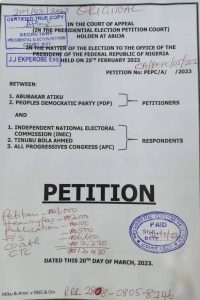 21/03/2023 ORIGINAL
CERTIFIED TRUE COPY
SECRETARY
PRESIDENTIAL ELECTION PETITION
COURT 2023
J.J EKPEROBE Esq.
IN THE COURT OF APPEAL
(IN THE PRESIDENTIAL ELECTION PETITION COURT)
HOLDEN AT ABUJA
IN THE MATTER OF THE ELECTION TO THE OFFICE OF THE
PRESIDENT OF THE FEDERAL REPUBLIC OF NIGERIA
HELD ON 25TH FEBRUARY 2023
PETITION No: PEPC/A/ /2023
CA/PEPC/05/2023
BETWEEN:
1. ABUBAKAR ATIKU
2. PEOPLES DEMOCRATIC PARTY (PDP)
PETITIONERS
AND
1. INDEPENDENT NATIONAL ELECTORAL
COMMISSION (INEC)
2. TINUBU BOLA AHMED
3. ALL PROGRESSIVES CONGRESS (APC)
RESPONDENTS
PETITION
Petition
CTC
PAID
DATED THIS 20TH DAY OF MARCH, 2023.
Atiku & Anor. v INEC & Ors
-0805-8246